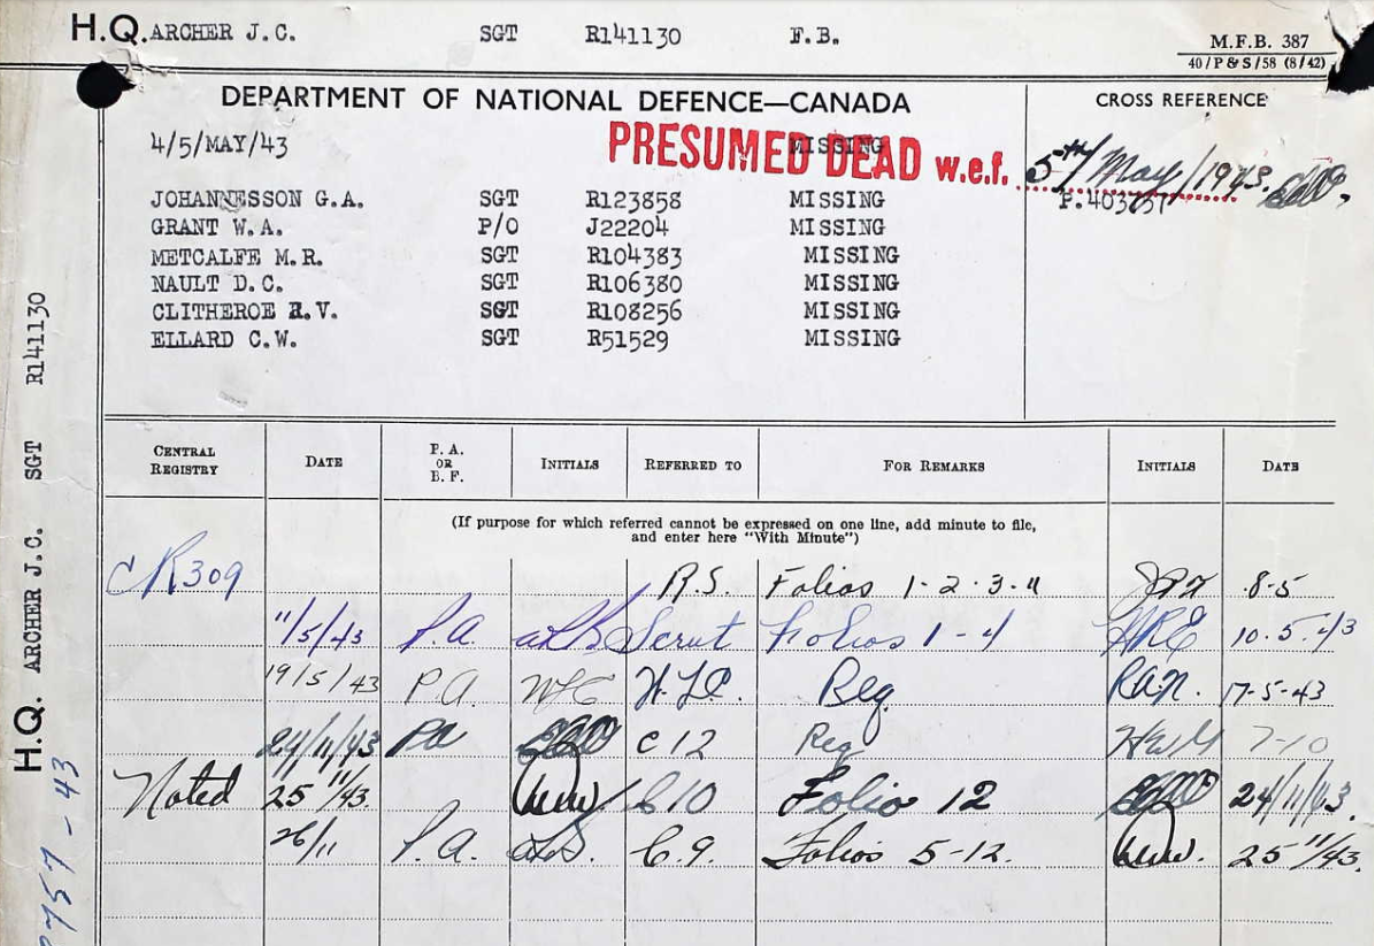 H.Q. ARCHER J.C. SGT R141130 F.B.
M.F.B. 387
40/P&S/58 (8/42)
DEPARTMENT OF NATIONAL DEFENCE—CANADA
CROSS REFERENCE
4/5/MAY/43 MISSING
PRESUMED DEAD w.e.f. 5th/May/1943.
JOHANNESSON G.A. SGT R123858 MISSING
GRANT W.A. P/O J22204 MISSING
METCALFE M.R. SGT R104383 MISSING
NAULT D.C. SGT R106380 MISSING
CLITHEROE R.V. SGT R108256 MISSING
ELLARD C.W. SGT R51529 MISSING
CENTRAL REGISTRY DATE P. A. OR B. F. INITIALS REFERRED TO FOR REMARKS INITIALS DATE
(If purpose for which referred cannot be expressed on one line, add minute to file,
and enter here "With Minute")
CR309 R.S. Folios 1-2-3-4 8-5
11/5/43 P.A. Scrut Folios 1-4 10.5.43
19/5/43 P.A. Reg RAN. 17-5-43
24/11/43 PA C12 Reg 7-10
Noted 25 11/43. C10 Folio 12 24/11/43.
26/11 P.A. C.9. Folios 5-12. 25 11/43.
H.Q. ARCHER J.C. SGT R141130